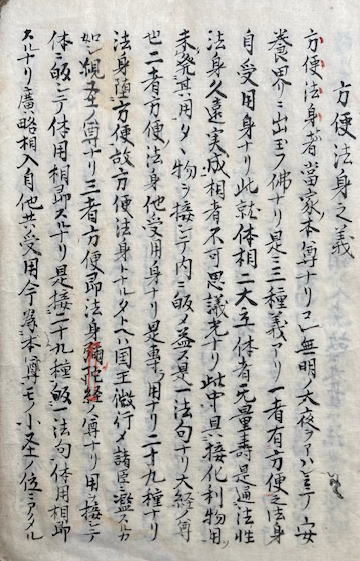 方便法身之義
方便法身者當家本尊ナリコレ無明ノ大夜ヲアハレミテ安
養界ニ出玉フ佛ナリ是ニ三種義アリ一者有方便之法身
自受用身ナリ此就体相二大立体者无量壽是遍法性
法身久遠実成相者不可思議光ナリ此中具接化利物用
未発其用タヽ物ヲ接シテ内ニ皈ノ益ス是一法句ナリ大経ノ尊
也二者方便法身他受用身ナリ是專ラ用ナリ二十九種ナリ
法身随方便故方便法身トナルタトヘハ国王微行メ諸臣ニ濫スルカ
如シ観経ノ尊ナリ三者方便即法身弥陀経ノ尊ナリ用ヲ接シテ
体ニ皈シテ体用相即スルナリ是接二十九種皈一法句体用相即
スルナリ廣略相入自他共受用今為本尊モノ小経ノ位ニアタル